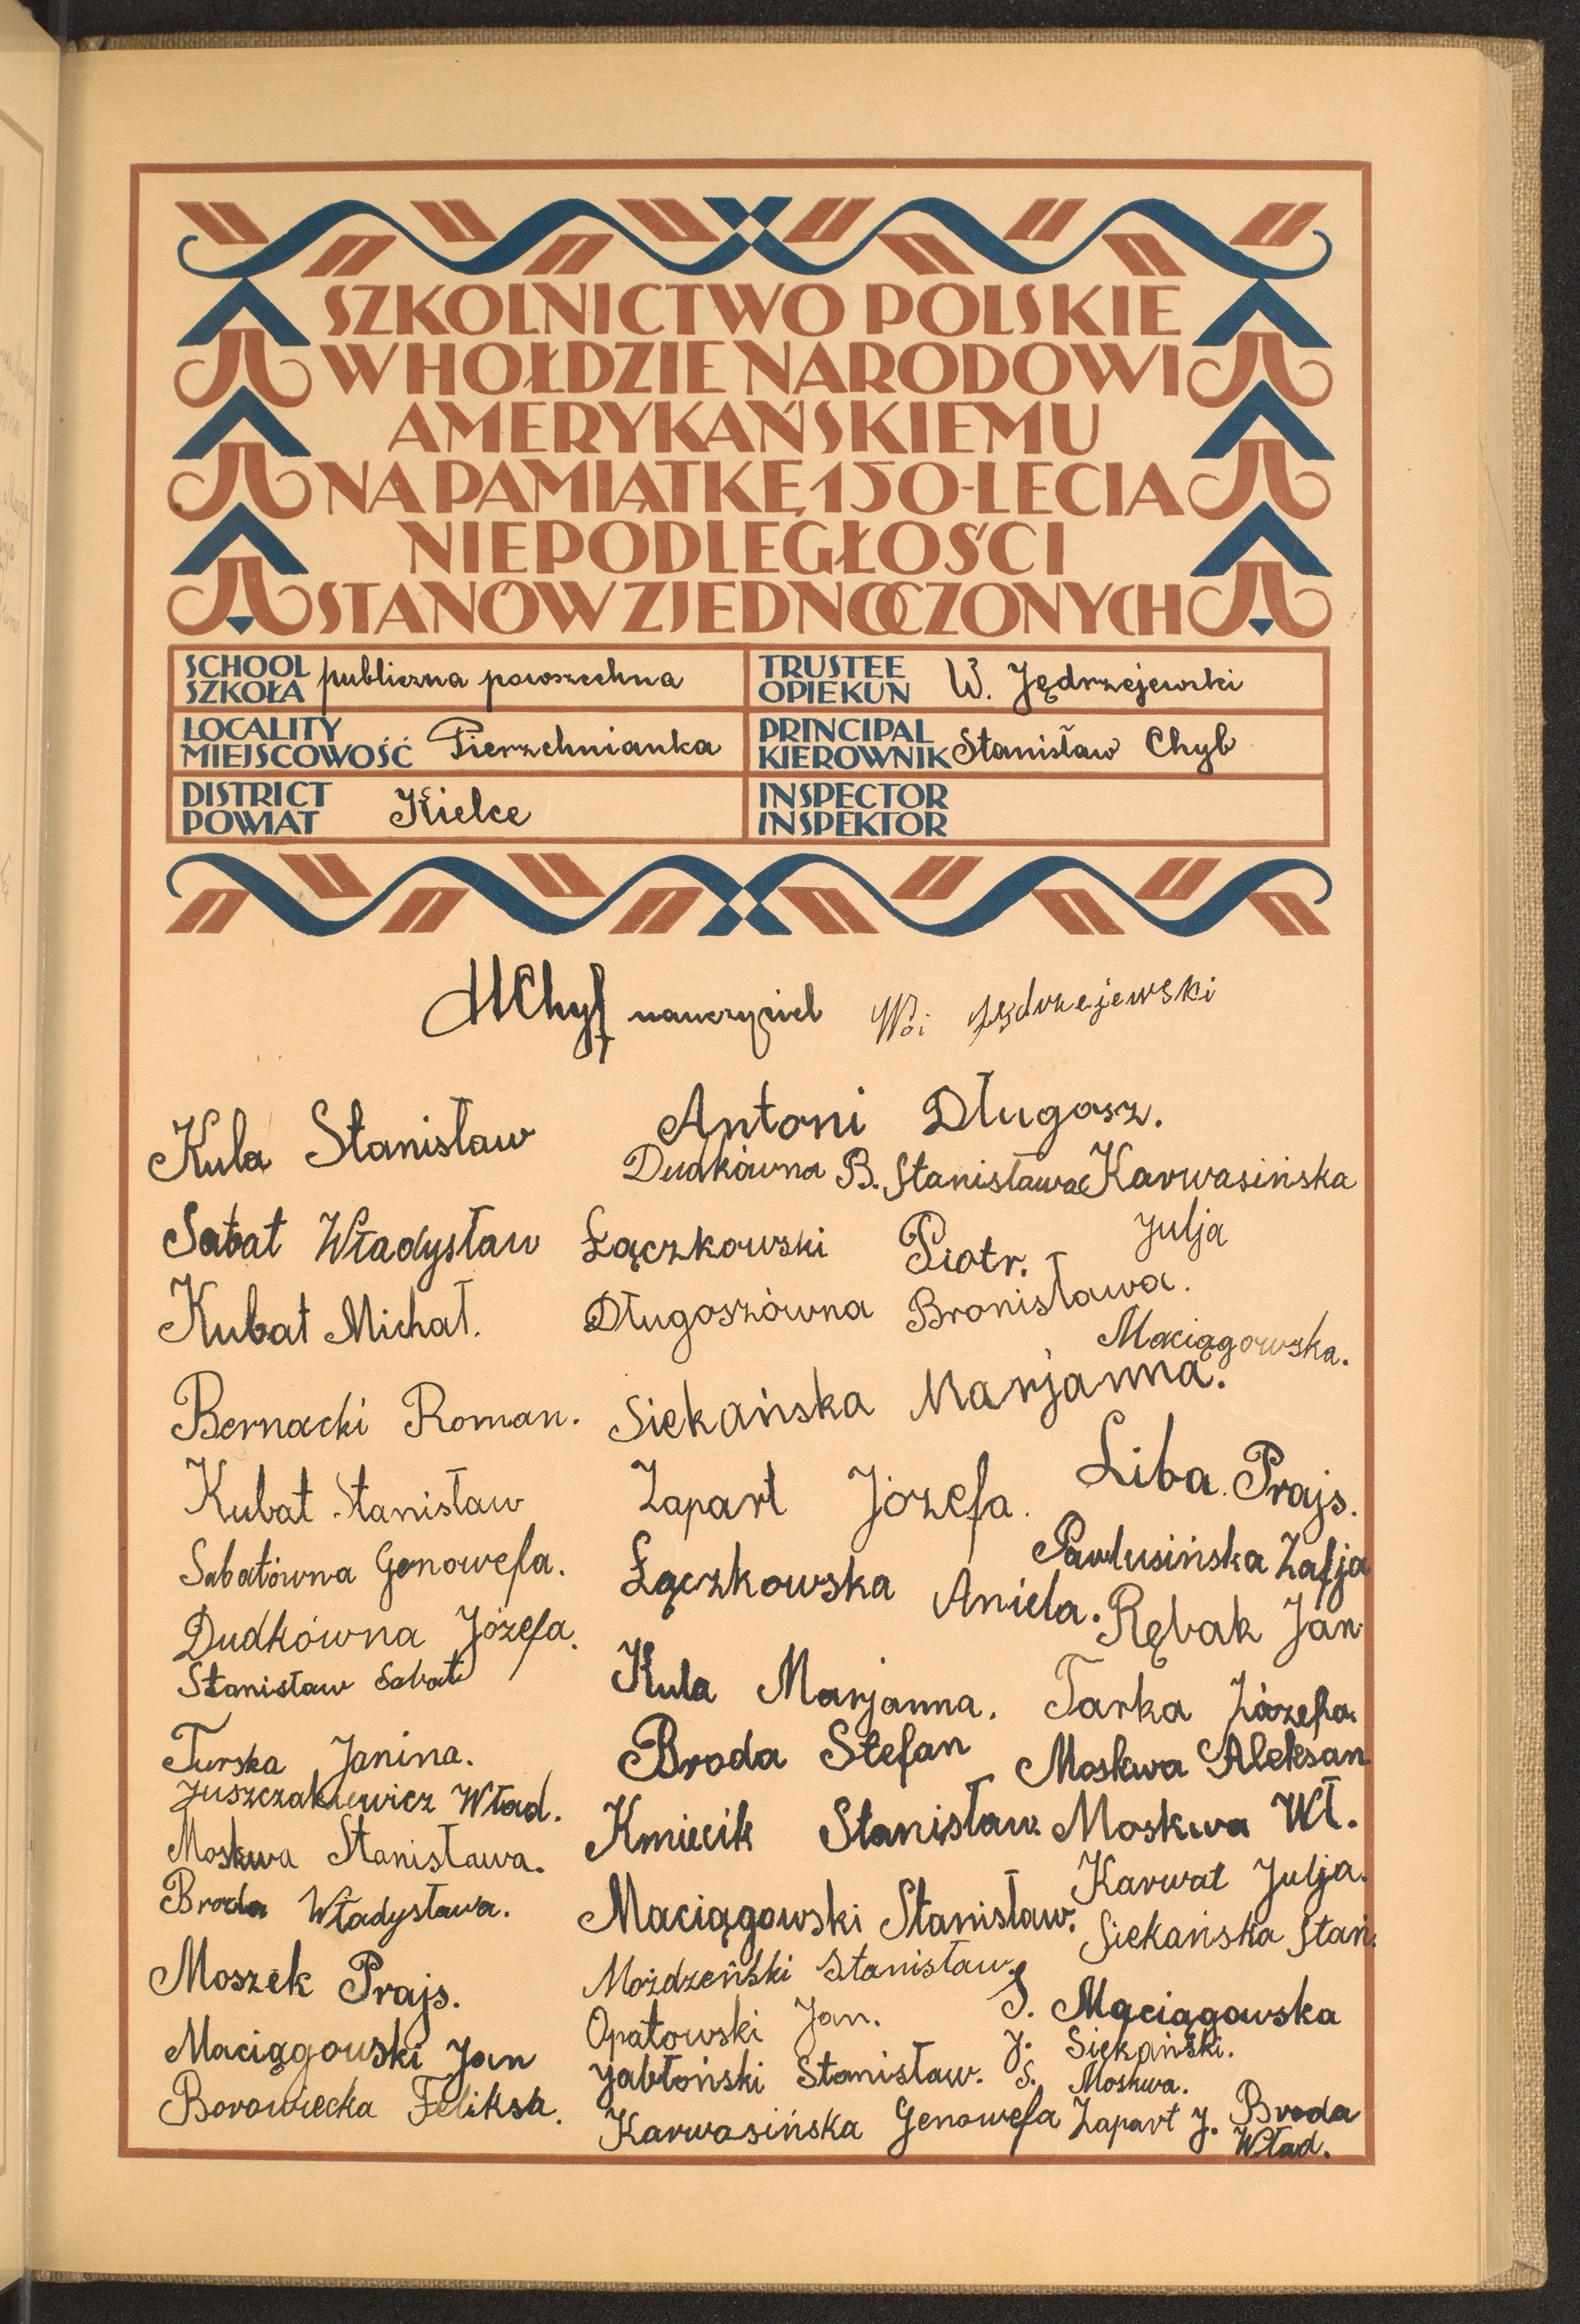 SZKOLNICTWO POLSKIE
W HOŁDZIE NARODOWI
AMERYKAŃSKIEMU
NA PAMIĄTKĘ 150-LECIA
NIEPODLEGŁOŚCI
STANÓW ZJEDNOCZONYCH
SCHOOL
SZKOŁA publiczna powszechna
TRUSTEE
OPIEKUN W. Jędrzejewski
LOCALITY
MIEJSCOWOŚĆ Pierzchnianka
PRINCIPAL
KIEROWNIK Stanisław Chyb
DISTRICT
POWIAT Kielce
INSPECTOR
INSPEKTOR
Chyb nauczyciel Woj Jędrzejewski
Kula Stanisław
Sabat Władysław
Kubat Michał.
Bernacki Roman.
Kubat Stanisław
Sabatówna Genowefa.
Dudkówna Józefa.
Stanisław Sabat
Turska Janina.
Juszczakiewicz Wład.
Moskwa Stanisława.
Broda Władysława.
Moszek Prajs.
Maciągowski Jan
Borowiecka Feliksa.
Antoni Długosz.
Dudkówna B. Stanisława
Łączkowski Piotr.
Długoszówna Bronisława.
Siekańska Marjanna.
Zapart Józefa.
Łączkowska Aniela.
Kula Marjanna.
Broda Stefan
Kmiecik Stanisław
Maciągowski Stanisław.
Możdzeński Stanisław.
Opatowski Jan.
Jabłoński Stanisław.
Karwasińska Genowefa
Karwasińska
Julja
Maciągowska.
Liba Prajs.
Pawlusińska Zofja
Rębak Jan
Tarka Józefa.
Moskwa Aleksan
Moskwa Wł.
Karwat Julja.
Siekańska Stań.
S. Maciągowska
J. Siekański.
S. Moskwa.
Zapart J. Broda
Wład.